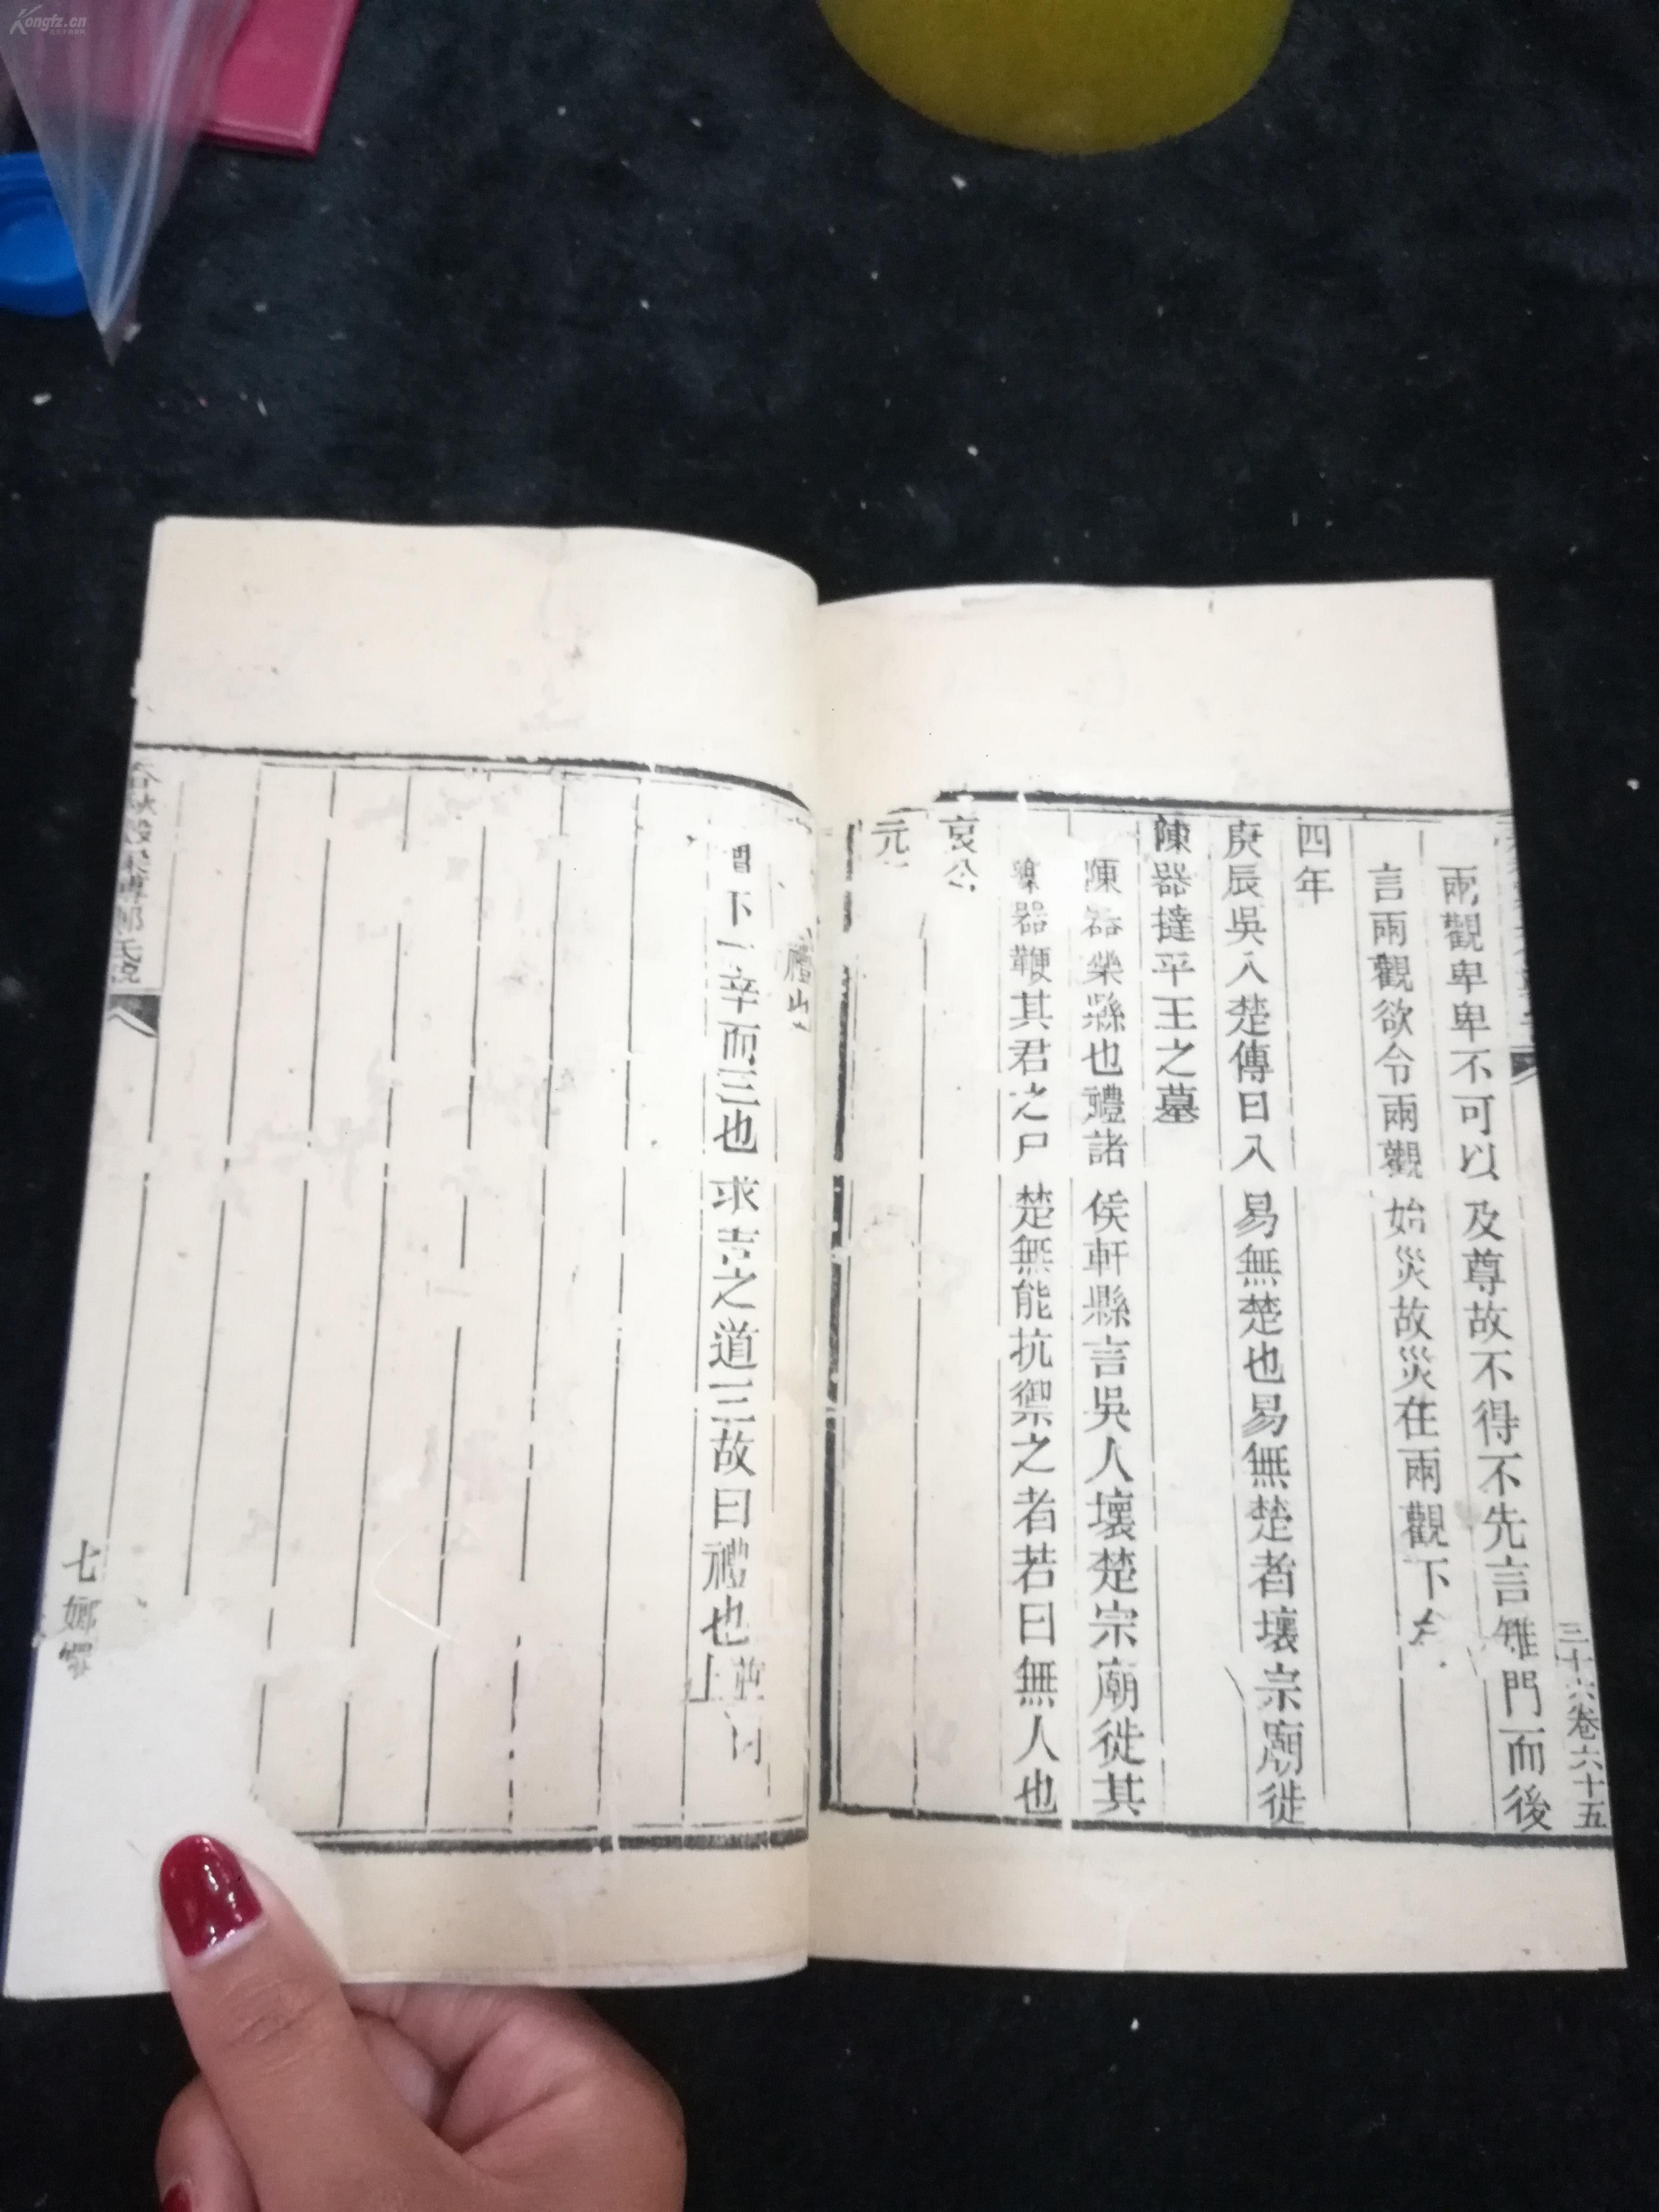 兩觀卑卑不可以及尊故不得不先言雉門而後
言雨觀欲令兩觀始災故災在兩觀下
四年
庚辰吳入楚傳曰入易無楚也易無楚者壞宗廟徙
陳器撻平王之墓
陳器樂縣也禮諸侯軒縣言吳人壞楚宗廟徙其
樂器鞭其君之尸楚無能抗禦之者若曰無人也
哀公
元
三十六卷六十五
下辛而三也求吉之道三故曰禮也
上
春秋穀梁傳鄭氏說
七 嫏嬛
Kongfz.cn